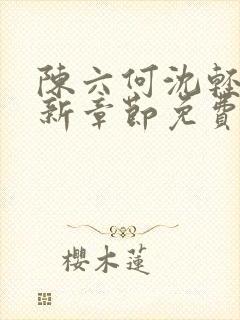 陳六何沈輕
新章節免費
櫻木蓮